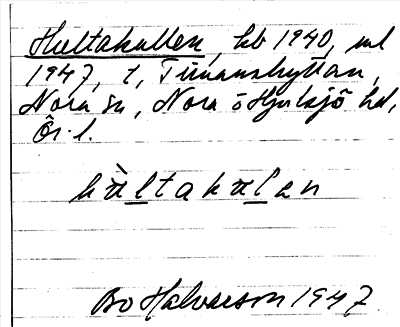 Hultakullen, kb 1940, ml
1947, t, Timanshyttan,
Nora sn, Nora o Hjulsjö hd,
Ör. l.
hùltakulen
Bo Halvarson 1947